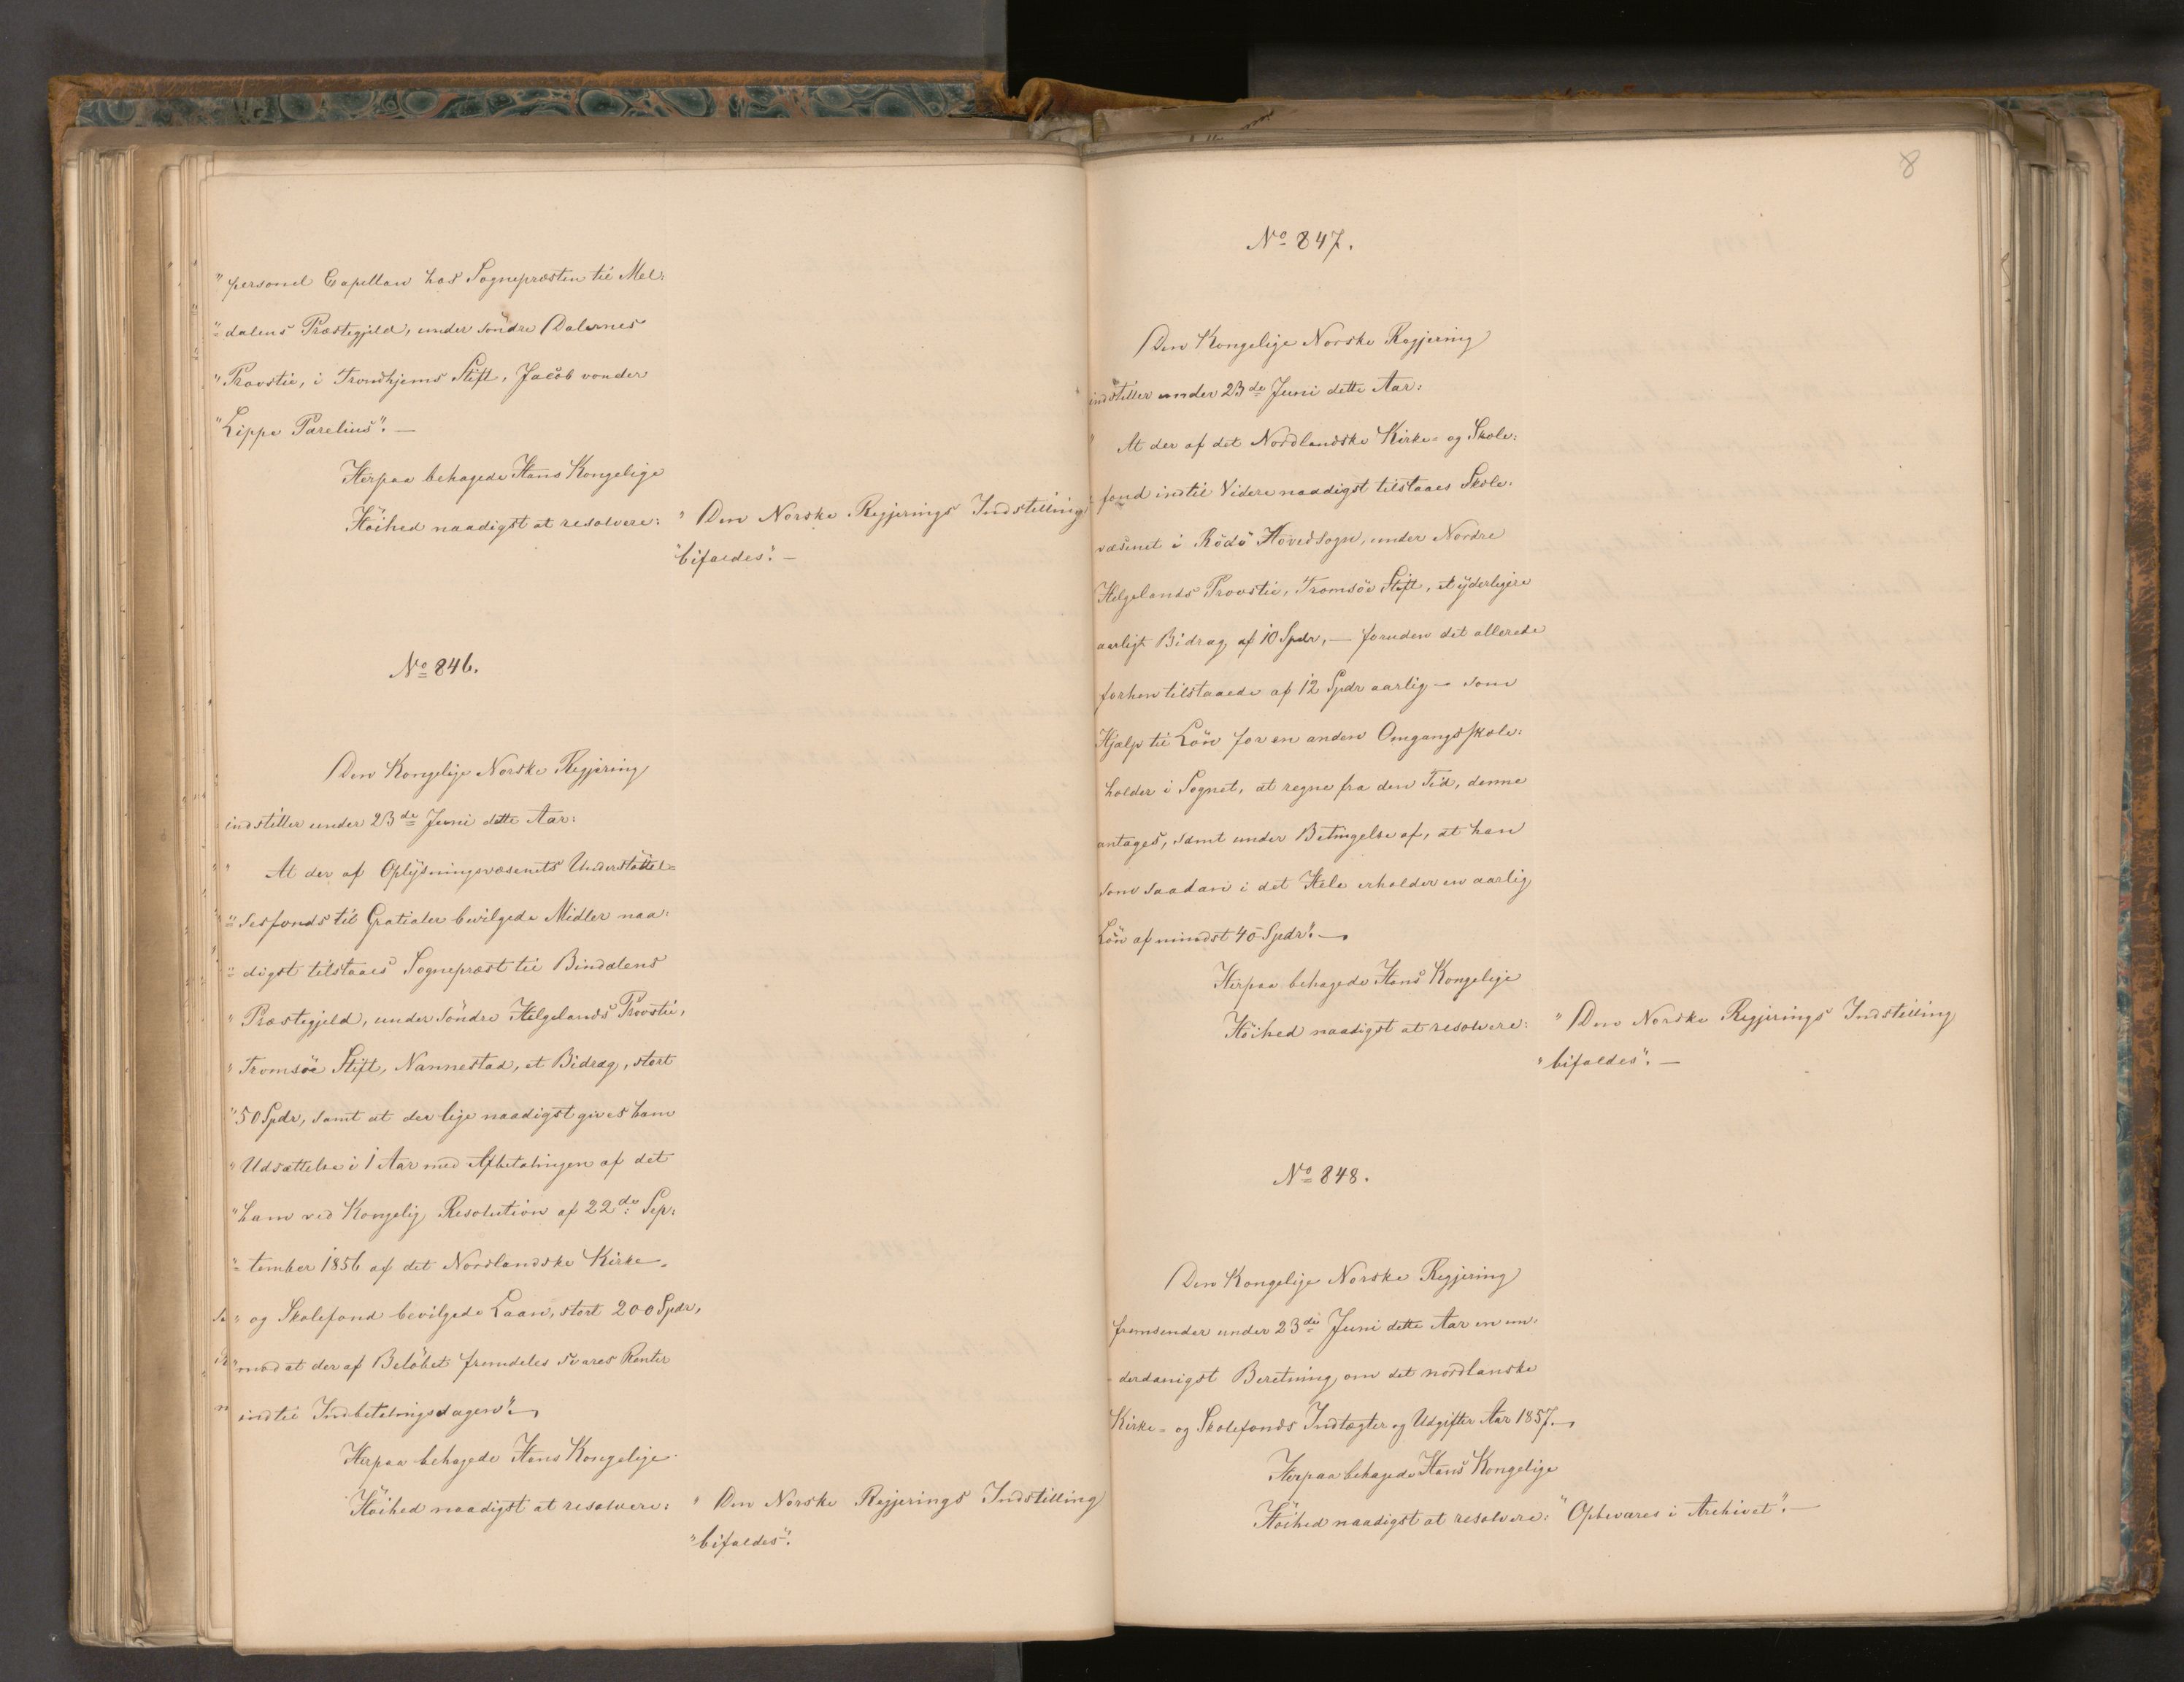 "personel Capellan hos Sognepræsten til Mel=
"=dalens Præstegjeld, under söndre Dalernes
"Provstie, i Trondhjems Stift, Jacob vonder
"Lippe Parelius". —
Herpaa behagede Hans Kongelige
Höihed naadigst at resolvere: "Den Norske Regjerings Indstilling
"bifaldes". —
No 846.
Den Kongelige Norske Regjering
indstiller under 23de Juni dette Aar:
" At der af Oplysningsvæsenets Understöttel=
"=sesfonds til Gratialer bevilgede Midler naa=
"=digst tilstaaes Sognepræst til Bindalens
"Præstegjeld, under Söndre Helgelands Provstie,
"Tromsöe Stift, Nannestad, et Bidrag, stort
"50 Spdr, samt at der lige naadigst gives ham
"Udsættelse i 1 Aar med Afbetalingen af det
"ham ved Kongelig Resolution af 22de Sep=
"=tember 1856 af det Nordlandske Kirke-
"og Skolefond bevilgede Laan, stort 200 Spdr,
"mod at der af Belöbet fremdeles svares Renter
indtil Indbetalingsdagen". —
Herpaa behagede Hans Kongelige
Höihed naadigst at resolvere: "Den Norske Regjerings Indstilling
"bifaldes".
8
No 847.
Den Kongelige Norske Regjering
indstiller under 23de Juni dette Aar:
" At der af det Nordlandske Kirke- og Skole=
fond indtil Videre naadigst tilstaaes Skole=
væsenet i Rödö Hovedsogn, under Nordre
Helgelands Provstie, Tromsöe Stift, et yderligere
aarligt Bidrag af 10 Spdr, — foruden det allerede
forhen tilstaaede af 12 Spdr aarlig — som
Hjælp til Lön for en anden Omgangsskole=
holder i Sognet, at regne fra den Tid, denne
antages, samt under Betingelse af, at han
som saadan i det Hele erholder en aarlig
Lön af mindst 40 Spdr". —
Herpaa behagede Hans Kongelige
Höihed naadigst at resolvere: "Den Norske Regjerings Indstilling
"bifaldes". —
No 848.
Den Kongelige Norske Regjering
fremsender under 23de Juni dette Aar en un=
derdanigst Beretning om det nordlanske
Kirke- og Skolefonds Indtægter og Udgifter Aar 1857. —
Herpaa behagede Hans Kongelige
Höihed naadigst at resolvere: "Opbevares i Archivet". —